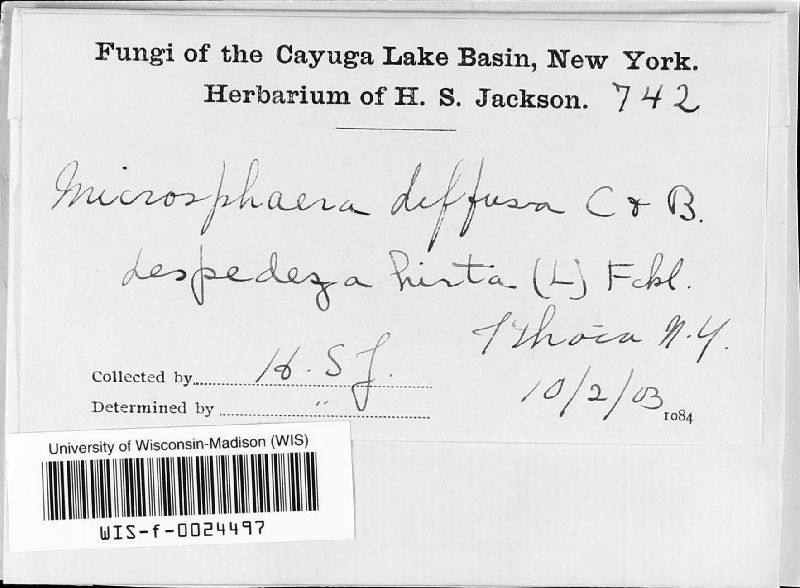 Fungi of the Cayuga Lake Basin, New York.
Herbarium of H. S. Jackson. 742
Microsphaera diffusa C & B.
Lespedeza hirta (L) Fckl.
Ithaca N.Y.
Collected by H. S J.
10/2/03
Determined by "
1084
University of Wisconsin-Madison (WIS)
WIS-f-0024497